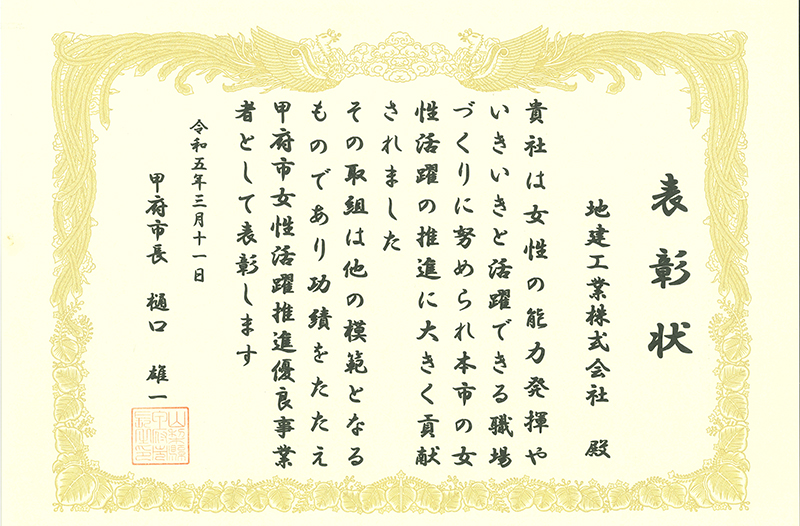 表彰状
地建工業株式会社 殿
貴社は女性の能力発揮や
いきいきと活躍できる職場
づくりに努められ本市の女
性活躍の推進に大きく貢献
されました
その取組は他の模範となる
ものであり功績をたたえ
甲府市女性活躍推進優良事業
者として表彰します
令和五年三月十一日
甲府市長 樋口 雄一